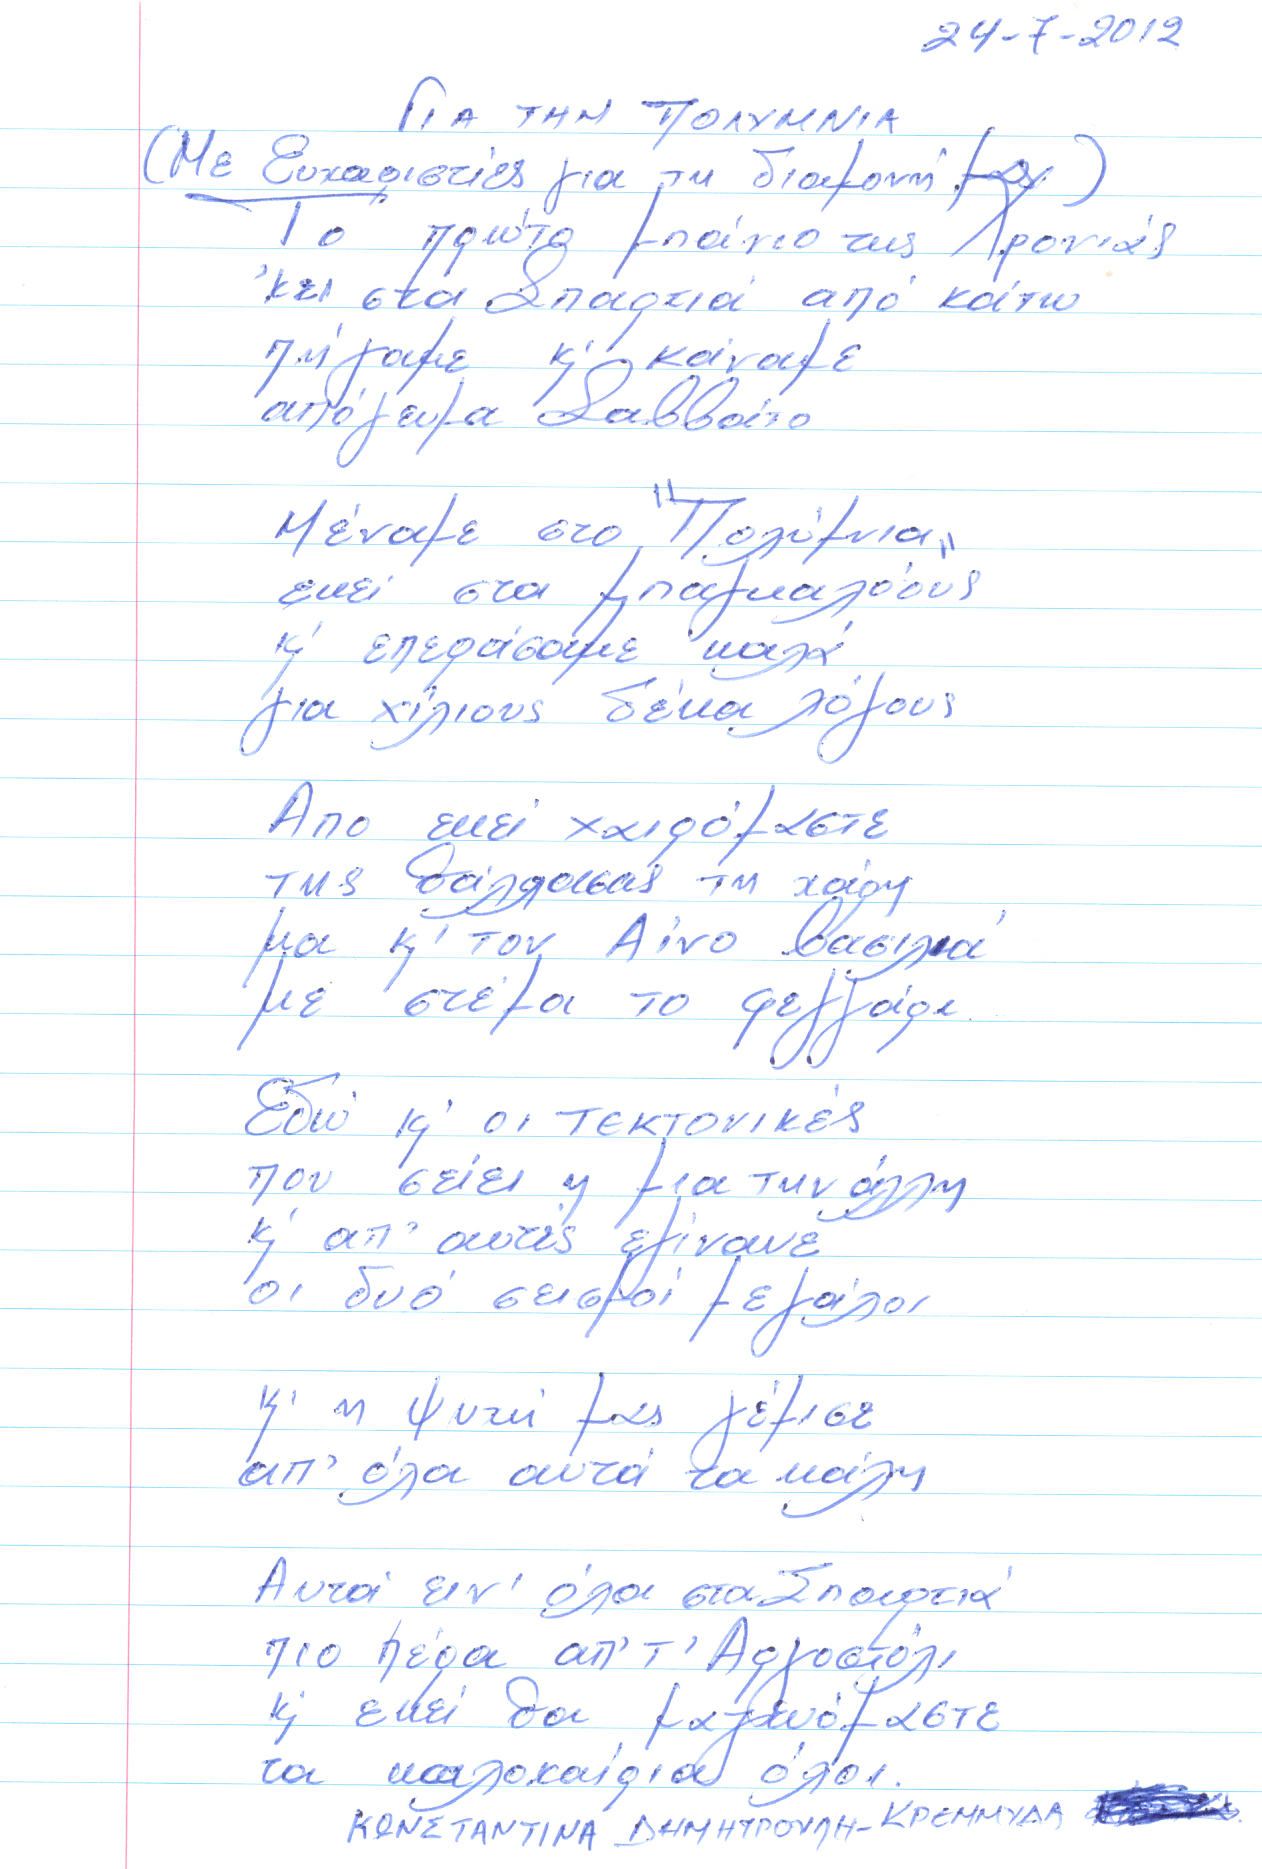 24-7-2012
ΓΙΑ ΤΗΝ ΠΟΛΥΜΝΙΑ
(Με Ευχαριστίες για τη διαμονή μας)
Το πρώτο μπάνιο της χρονιάς
'κει στα Σπαρτιά από κάτω
πήγαμε κι κάναμε
απόγευμα Σαββάτο
Μέναμε στο "Πολύμνια"
εκεί στα μπαγκαλόους
κι επεράσαμε καλά
για χίλιους δέκα λόγους
Απο εκεί χαιρόμαστε
της θάλλασας τη χάρη
μα κι τον Αίνο βασιλιά
με στέμα το φεγγάρι.
Εδώ κι οι τεκτονικές
που σείει η μια την άλλη
κι απ' αυτές εγίνανε
οι δυό σεισμοί μεγάλοι
κι η ψυχή μας γέμισε
απ' όλα αυτά τα κάλη
Αυτά ειν' όλα στα Σπαρτιά
πιο πέρα απ' τ' Αργοστόλι
κι εκεί θα μαζευόμαστε
τα καλοκαίρια όλοι.
ΚΩΝΣΤΑΝΤΙΝΑ ΔΗΜΗΤΡΟΥΛΗ-ΚΡΕΜΜΥΔΑ